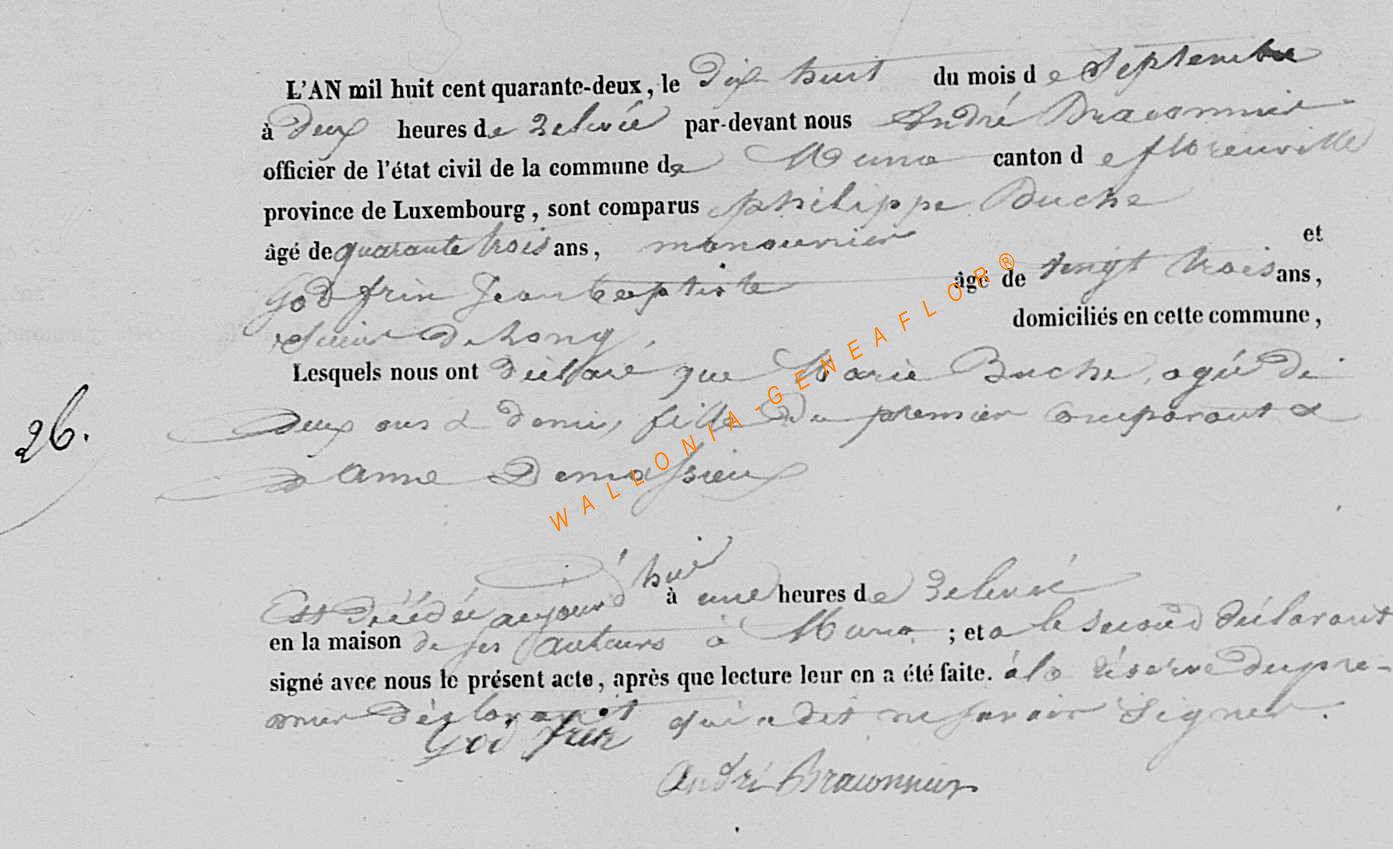 L'AN mil huit cent quarante-deux, le Dix huit du mois de Septembre
à Deux heures de Relevée par-devant nous André Braconnier
officier de l'état civil de la commune de Muno canton de florenville
province de Luxembourg, sont comparus philippe Buche
âgé de quarante trois ans, manouvrier et
godfrin Jean baptiste âgé de vingt trois ans,
Scieur De Long, domiciliés en cette commune,
Lesquels nous ont Déclaré que Marie Buche, agée De
Deux ans & Demi, fille Du premier Comparant &
D'anne Demassieux
26.
Est Décédée aujourd'hui à une heures de Relevée
en la maison de ses auteurs à Muno ; et a le second Déclarant
signé avec nous le présent acte, après que lecture leur en a été faite. à la réserve Du pre-
mier Déclarant qui a dit ne savoir Signer.
God frin
André Braconnier
WALLONIA-GENEAFLOR®